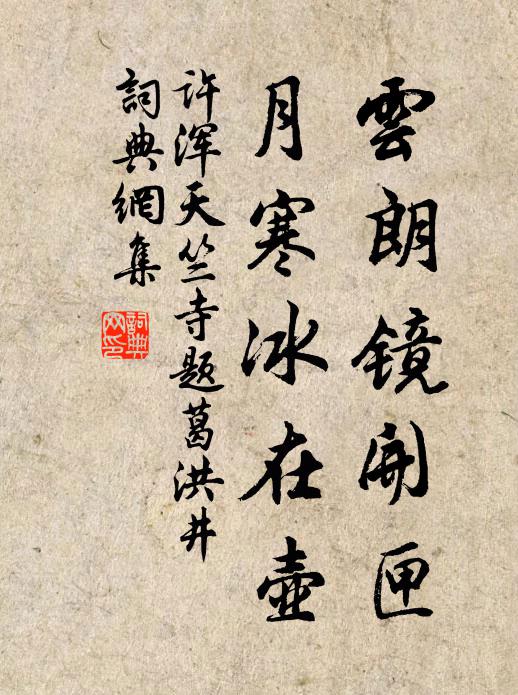 雲朗镜開匣
月寒冰在壺
許渾天竺寺題葛洪井
詞典網集
詞典網印